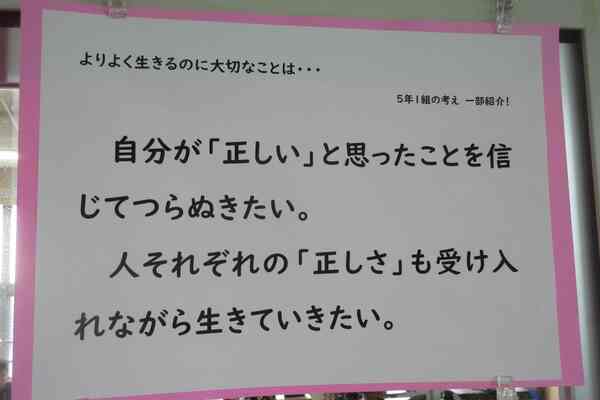 よりよく生きるのに大切なことは・・・
5年1組の考え 一部紹介!
自分が「正しい」と思ったことを信
じてつらぬきたい。
人それぞれの「正しさ」も受け入
れながら生きていきたい。